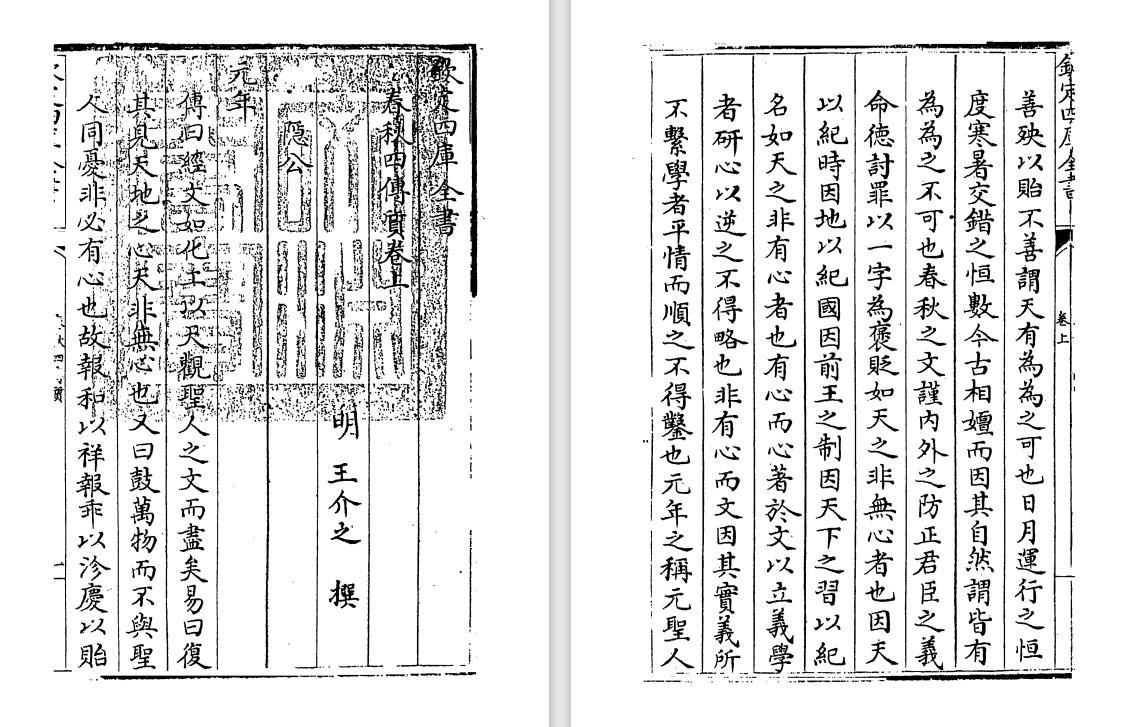 欽定四庫全書
春秋四傳質卷上
明 王介之 撰
隠公
元年
傳曰經文如化工以天觀聖人之文而盡矣易曰復
其見天地之心天非無心也又曰鼓萬物而不與聖
人同憂非必有心也故報和以祥報乖以沴慶以貽
欽定四庫全書
卷上
善殃以貽不善謂天有為為之可也日月運行之恒
度寒暑交錯之恒數今古相嬗而因其自然謂皆有
為為之不可也春秋之文謹内外之防正君臣之義
命徳討罪以一字為褒貶如天之非無心者也因天
以紀時因地以紀國因前王之制因天下之習以紀
名如天之非有心者也有心而心著於文以立義學
者研心以逆之不得略也非有心而文因其實義所
不繫學者平情而順之不得鑿也元年之稱元聖人